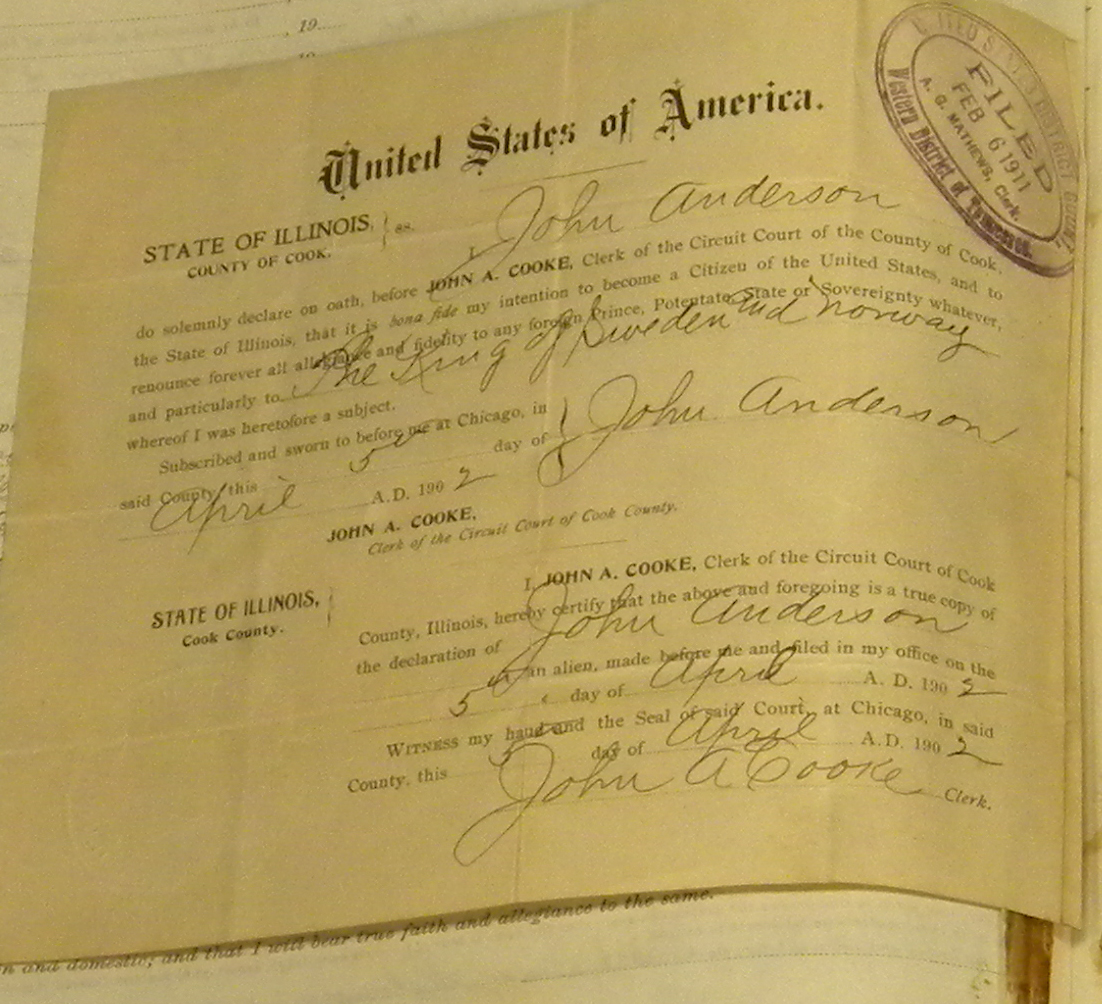 , 19
19
United States of America.
UNITED STATES DISTRICT COURT
FILED
FEB 6 1911
A. G. MATHEWS, Clerk.
Western District of Tennessee.
STATE OF ILLINOIS, } ss.
COUNTY OF COOK.
I, John Anderson
do solemnly declare on oath, before JOHN A. COOKE, Clerk of the Circuit Court of the County of Cook,
the State of Illinois, that it is bona fide my intention to become a Citizen of the United States, and to
renounce forever all allegiance and fidelity to any foreign Prince, Potentate, State or Sovereignty whatever,
and particularly to The King of Sweden and Norway
whereof I was heretofore a subject.
Subscribed and sworn to before me at Chicago, in
said County, this 5th day of
April A.D. 1902
} John Anderson
JOHN A. COOKE,
Clerk of the Circuit Court of Cook County.
STATE OF ILLINOIS,
Cook County.
I, JOHN A. COOKE, Clerk of the Circuit Court of Cook
County, Illinois, hereby certify that the above and foregoing is a true copy of
the declaration of John Anderson
an alien, made before me and filed in my office on the
5th day of April A. D. 1902
WITNESS my hand and the Seal of said Court, at Chicago, in said
County, this 5th day of April A.D. 1902
John A Cooke Clerk.
n and domestic; and that I will bear true faith and allegiance to the same.